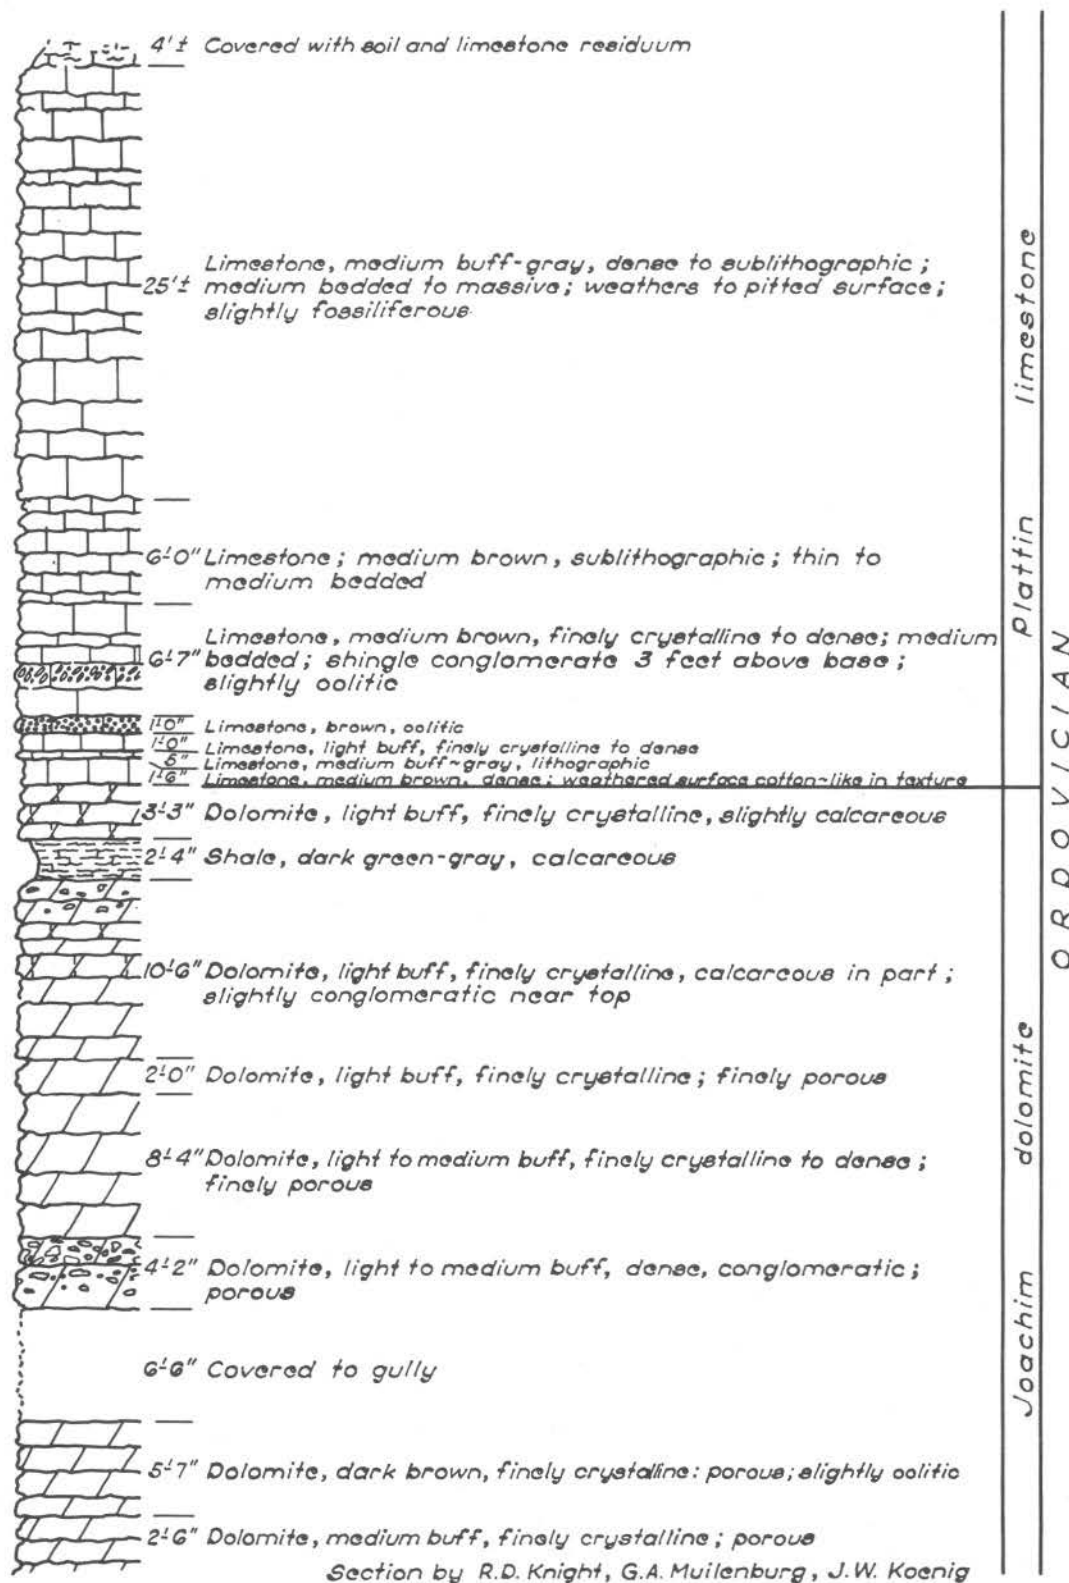 4'± Covered with soil and limestone residuum
Limestone, medium buff-gray, dense to sublithographic;
25'± medium bedded to massive; weathers to pitted surface;
slightly fossiliferous
6'-0" Limestone; medium brown, sublithographic; thin to
medium bedded
Limestone, medium brown, finely crystalline to dense; medium
6'-7" bedded; shingle conglomerate 3 feet above base;
slightly oolitic
1'-0" Limestone, brown, oolitic
1'-0" Limestone, light buff, finely crystalline to dense
5" Limestone, medium buff~gray, lithographic
1'-6" Limestone, medium brown, dense; weathered surface cotton~like in texture
3'-3" Dolomite, light buff, finely crystalline, slightly calcareous
2'-4" Shale, dark green-gray, calcareous
10'-6" Dolomite, light buff, finely crystalline, calcareous in part;
slightly conglomeratic near top
2'-0" Dolomite, light buff, finely crystalline; finely porous
8'-4" Dolomite, light to medium buff, finely crystalline to dense;
finely porous
4'-2" Dolomite, light to medium buff, dense, conglomeratic;
porous
6'-6" Covered to gully
5'-7" Dolomite, dark brown, finely crystalline: porous; slightly oolitic
2'-6" Dolomite, medium buff, finely crystalline; porous
Section by R.D. Knight, G.A. Muilenburg, J.W. Koenig
Plattin limestone
Joachim dolomite
ORDOVICIAN